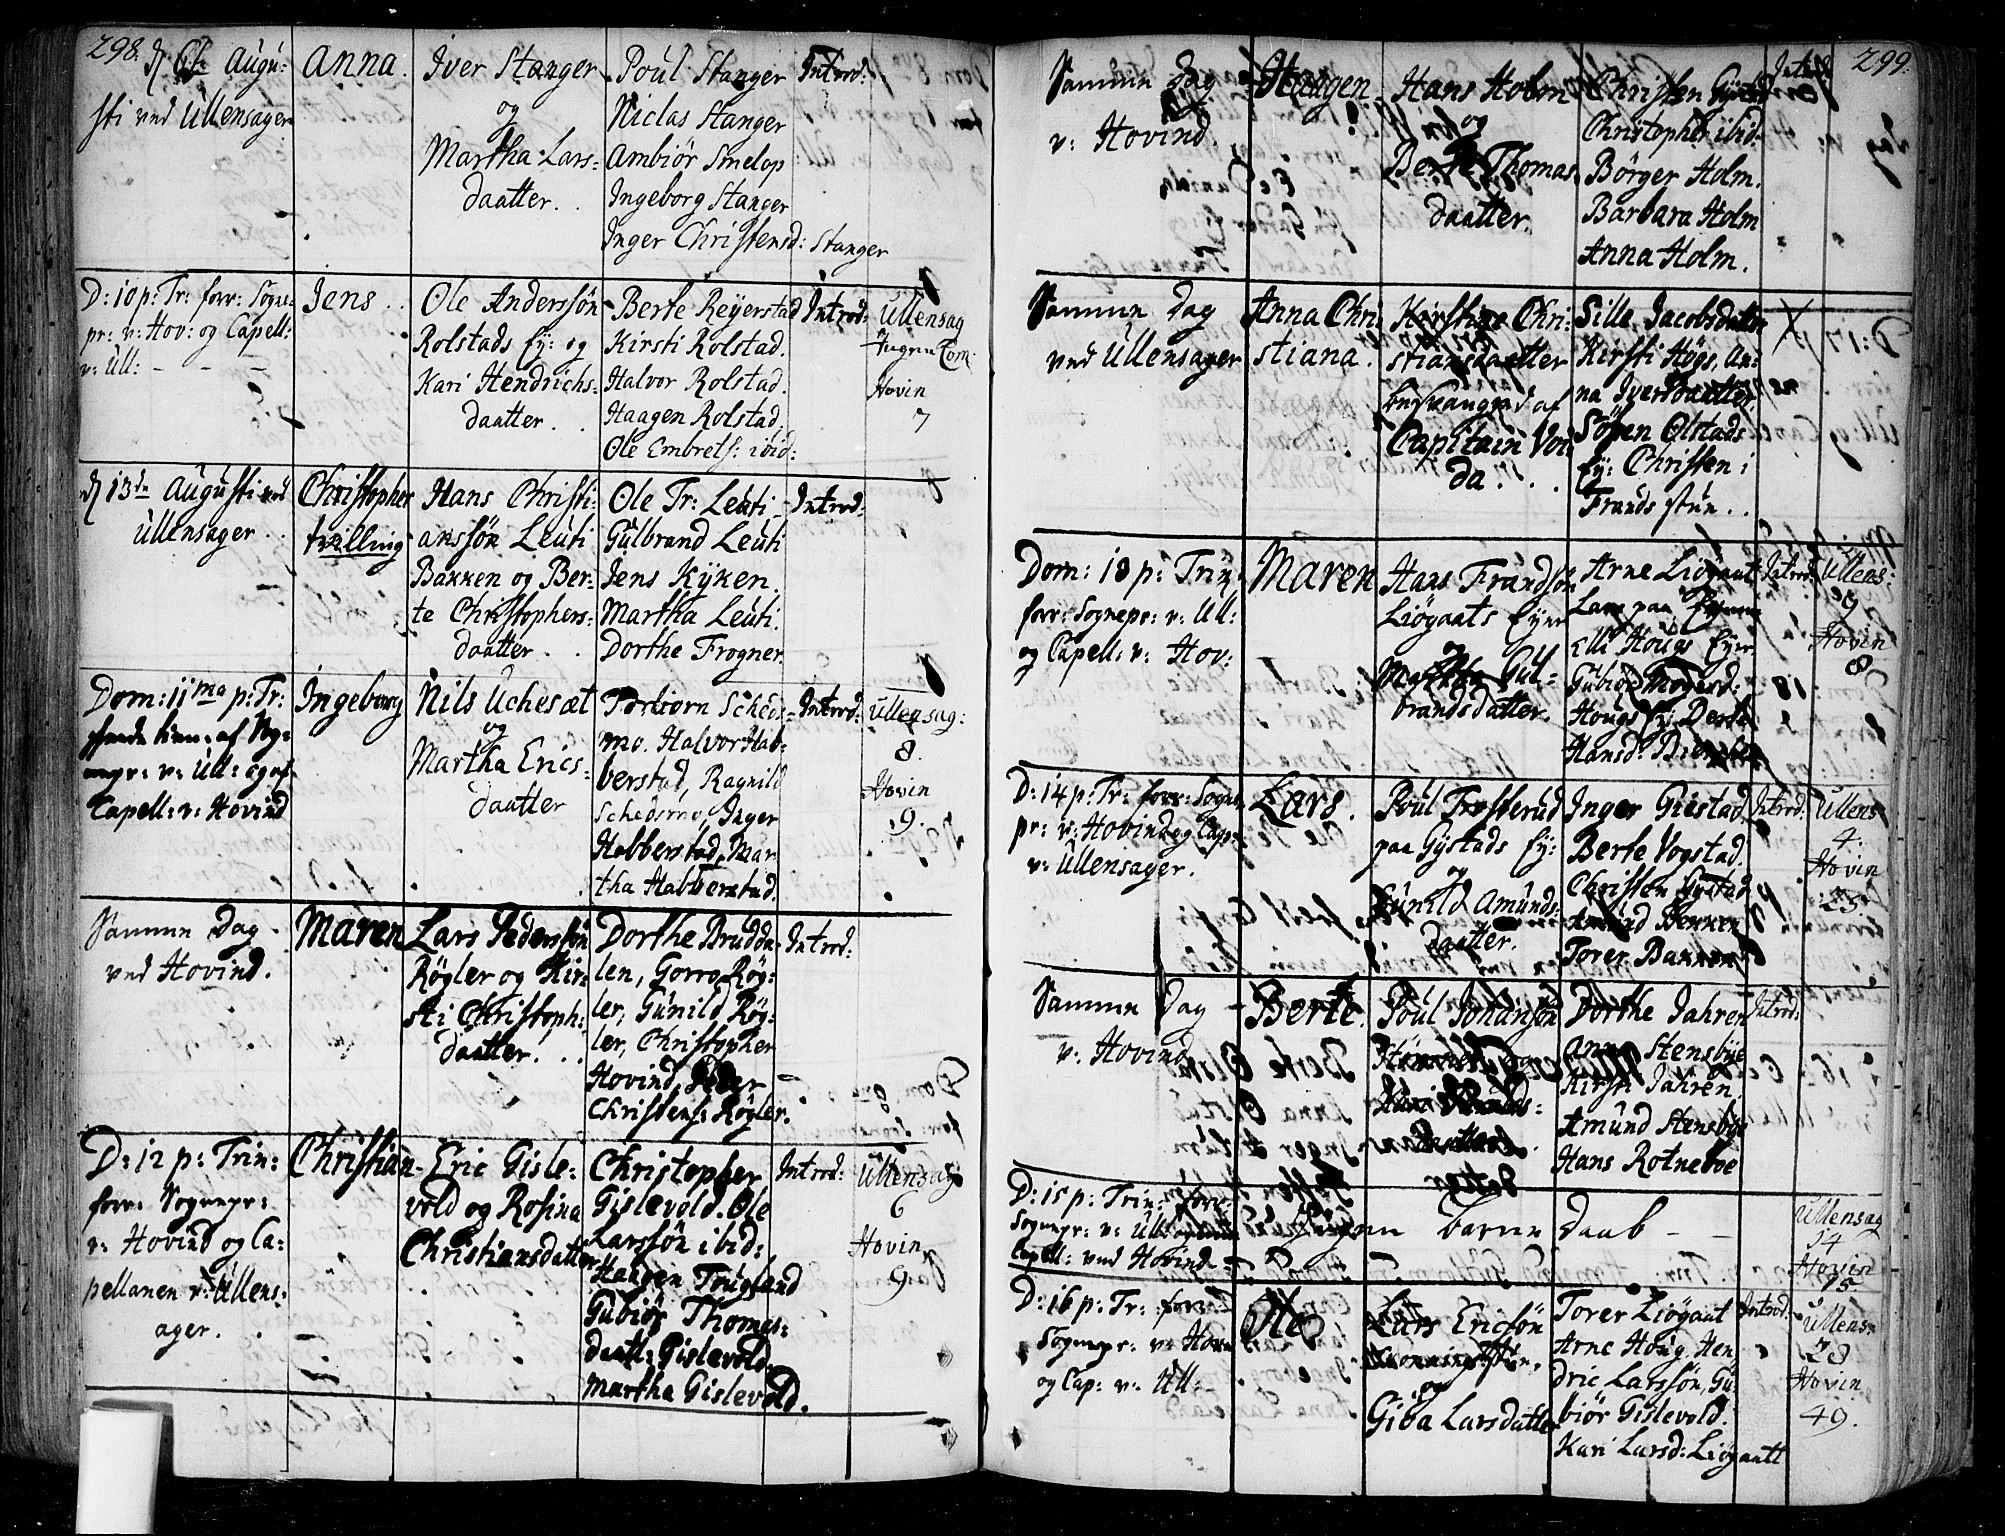 298.
d 6t: Augu-
sti ved Ullensager
Anna.
Iver Stanger
og
Martha Lars-
daatter.
Poul Stanger
Niclas Stanger
Ambiör Smelop
Ingeborg Stanger
Inger Christensd: Stanger
Introd:
D: 10 p: Tr: forr: Sogne-
pr: v: Hov: og Capell:
v: Ull: - - -
Jens
Ole Anderssön
Rolstads Ey: og
Kari Hendrichs-
daatter.
Berte Reyerstad
Kirsti Rolstad.
Halvor Rolstad.
Haagen Rolstad
Ole Embrets: ibid:
Introd:
Ullensag
Ingen Com:
Hovin
7
d 13de Augusti ved
Ullensager
Christopher
tvilling
Hans Christi-
anssön Leuti
Bakken og Ber-
te Christophers-
daatter.
Ole Tr: Leuti
Gulbrand Leuti
Jens Kyken
Martha Leuti.
Dorthe Frogner.
Introd:
Dom: 11ma p: Tr:
Capell: v: Hovind
Ingeborg
Nils Uchesæt
og
Martha Erics-
daatter
Torbiorn Scheds-
mo. Halvor Hab-
berstad, Ragnild
Schedsmo, Inger
Habberstad, Mar
tha Habberstad.
Introd:
Ullensag:
8.
Hovin
9.
Samme Dag
ved Hovind.
Maren
Lars Pederssön
Rögler og Kir-
sti Christoph:
daatter.
Dorthe Brudda-
len, Gorro Rög-
ler, Gunild Rög-
ler, Christopher
Hovind, Peder
Christens: Rögler.
Introd:
D: 12 p: Trin:
forr: Sognepr:
v: Hovind og Ca-
pellanen v: Ullens-
ager.
Christian
Eric Gisle-
vold og Rosina
Christiansdatter
Christopher
Gislevold. Ole
Larssön ibid:
Haagen Tougland
Gubiör Thomes-
daatt: Gislevold.
Martha Gislevold.
Introd:
Ullensag
6
Hovin
9.
299.
Samme Dag
v: Hovind.
Haagen
Hans Holm
og
Berte Thomas
daatter.
Christen
Christopher ibid:
Börger Holm.
Barbara Holm
Anna Holm.
Introd
Samme Dag
ved Ullensager
Anna Chri-
stiana.
Kirstine Chri-
stiansdaatter
besvangred af
Capitain Voi-
da.
Sille Jacobsdatter
Kirsti Högs, An-
na Iversdaatter,
Sören Olstads
Ey: Christen i
Frands stun.
Dom: 13 p: Trin:
forr: Sognepr: v: Ull:
og Capell: v: Hov:
Maren
Hans Frandsön
Liögaats Eyer
og
Martha Gul-
brandsdatter.
Arne Liögaat
Lars paa Eyerne
Elli Hougs Eyer
Gubiör Mogensd:
Hougs Ey: Berte
Hansd:
Introd:
Ullens:
9
Hovin
8
D: 14 p: Tr: forr: Sogne
pr: v: Hovind og Cap:
v: Ullensager.
Lars.
Poul Trosterud
paa Gystads Ey:
og
Gunild Amunds-
daatter.
Inger Gistad
Berte Vogstad.
Christen Gystad
Amund Bekken
Torer Bakken
Introd:
Ullens:
4.
Hovin
23.
Samme Dag
v: Hovind
Berte.
Poul Johansön
Dorthe Jahren
Anna Stensbye
Kirsti Jahren.
Amund Stensbye
Hans Rotneboe
Introd:
D: 15 p: Trin: forr:
Sognepr: v: Ullensager
Capell: ved Hovind
Ingen Barne Daab - -
Ullensag
14
Hovin
15.
D: 16 p: Tr: forr:
Sognepr: v: Hovin
og Cap: v: Ull:
Ole
Lars Ericsön
og
Giba Larsdatter
Torer Liögaat
Arne Houg, Hen
dric Larssön, Gu-
biör Gislevold.
Kari Larsd: Liögaatt
Introd:
Ullens:
23
Hovin
49.